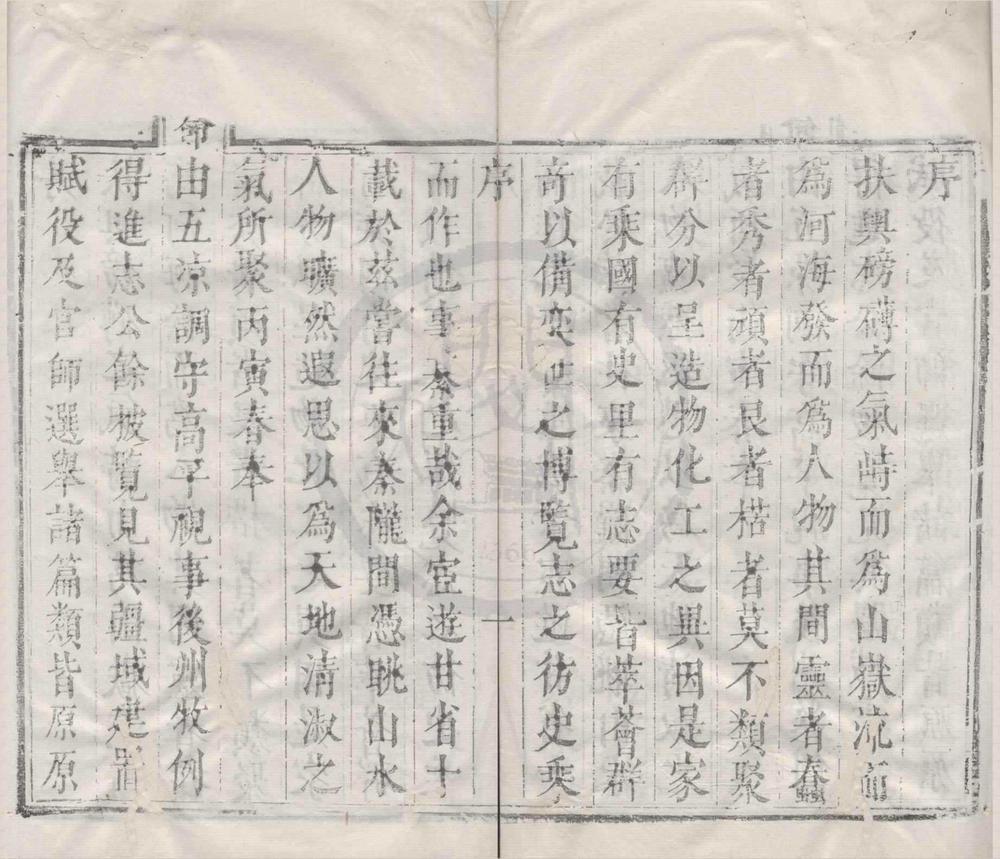 序
扶輿磅礴之氣峙而為山嶽流而
為河海發而為人物其間靈者蠢
者秀者頑者良者楛者莫不類聚
群分以呈造物化工之異因是家
有乘國有史里有志要皆萃薈群
奇以備奕世之博覽志之彷史乘
序
一
而作也事綦重哉余宦遊甘省十
載於茲嘗往來秦隴間憑眺山水
人物曠然遐思以為天地清淑之
氣所聚丙寅春奉
命
由五凉調守高平視事後州牧例
得進志公餘披覽見其疆域建置
賦役及官師選舉諸篇類皆原原